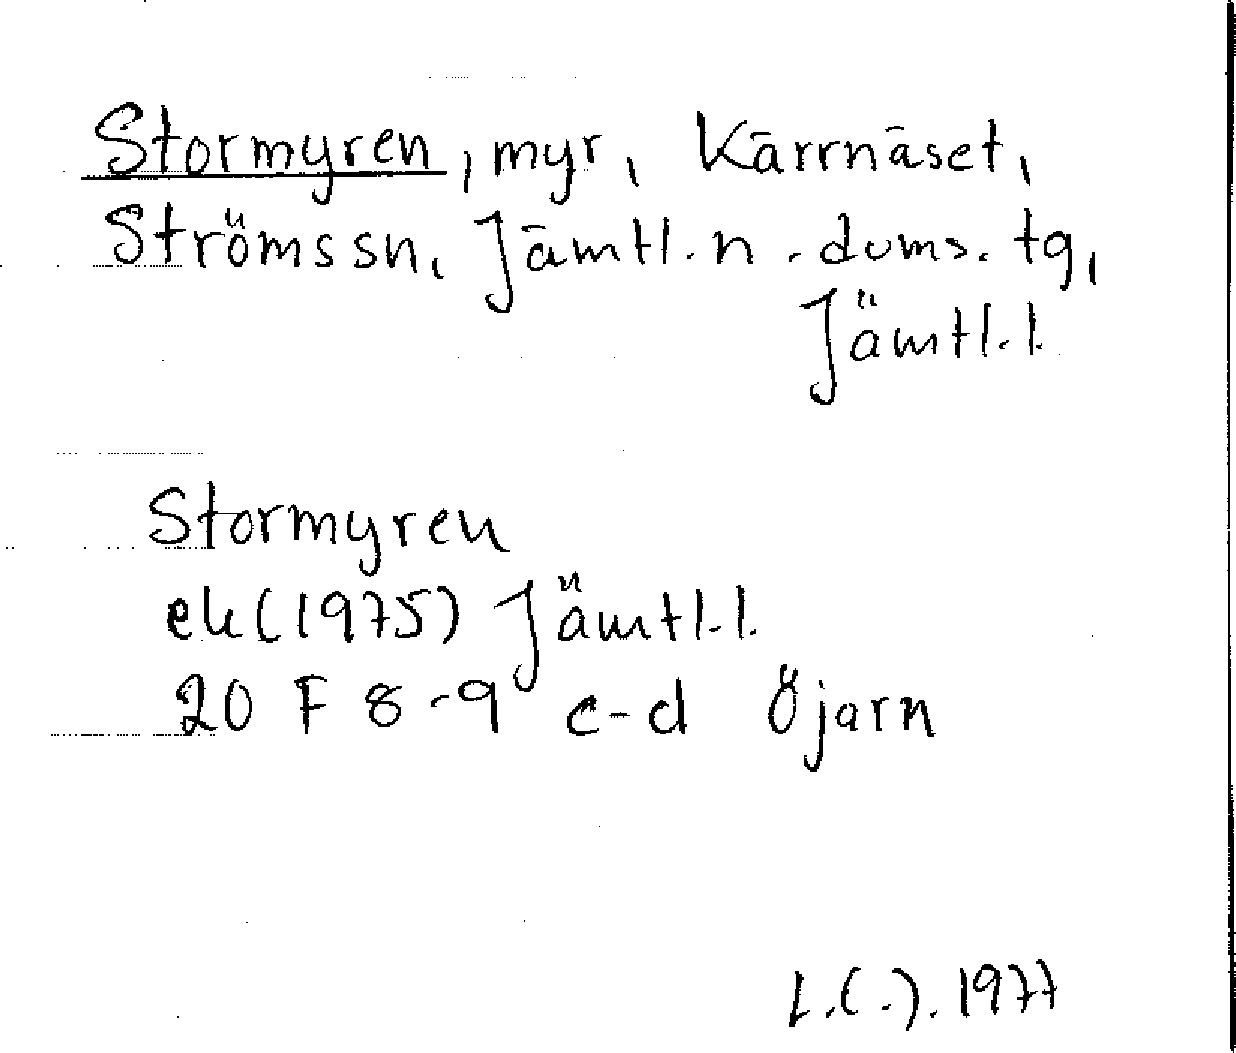 Stormyren, myr, Kärrnäset,
Ströms sn, Jämtl. n. doms. tg,
Jämtl. l.
Stormyren
ek (1975) Jämtl. l.
20 F 8-9 c-d Öjarn
1977